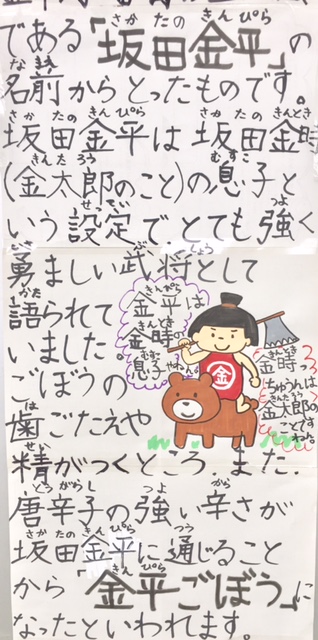 である「坂田金平」の
名前からとったものです。
坂田金平は坂田金時
(金太郎のこと)の息子と
いう設定でとても強く
勇ましい武将として
語られて
いました。
ごぼうの
歯ごたえや
精がつくところ、また
唐辛子の強い辛さが
坂田金平に通じること
から「金平ごぼう」に
なったといわれます。
金平は
金時の
息子やねん
金
金時っ
ちゅんは
金太郎の
ことです
わ。